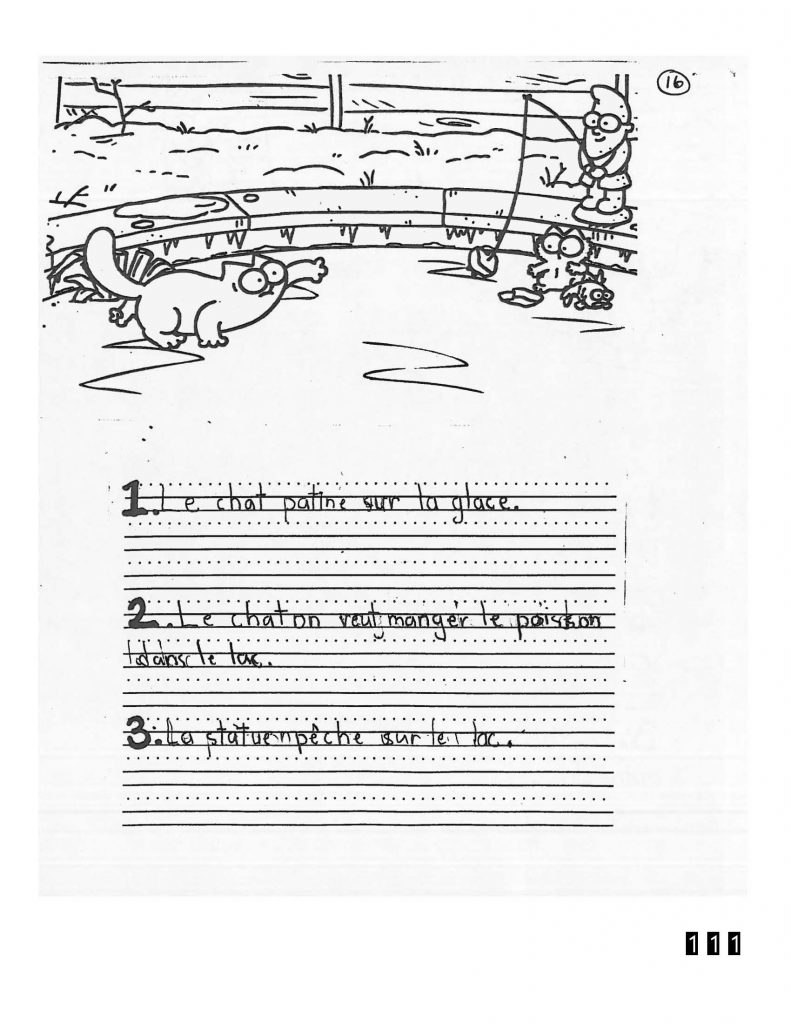 16
1. Le chat patine sur la glace.
2. Le chaton veut manger le poisson
dans le lac.
3. La statue pêche sur le lac.
111